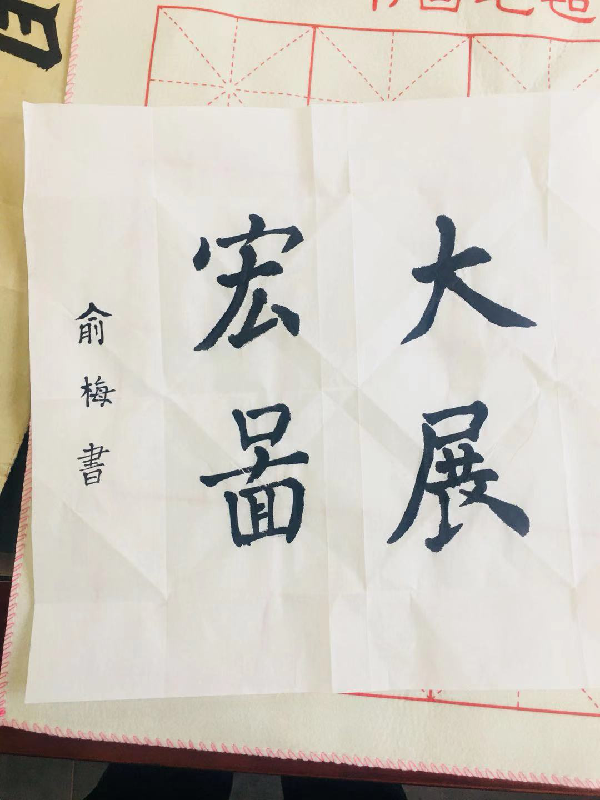 大展
宏啚
俞梅書